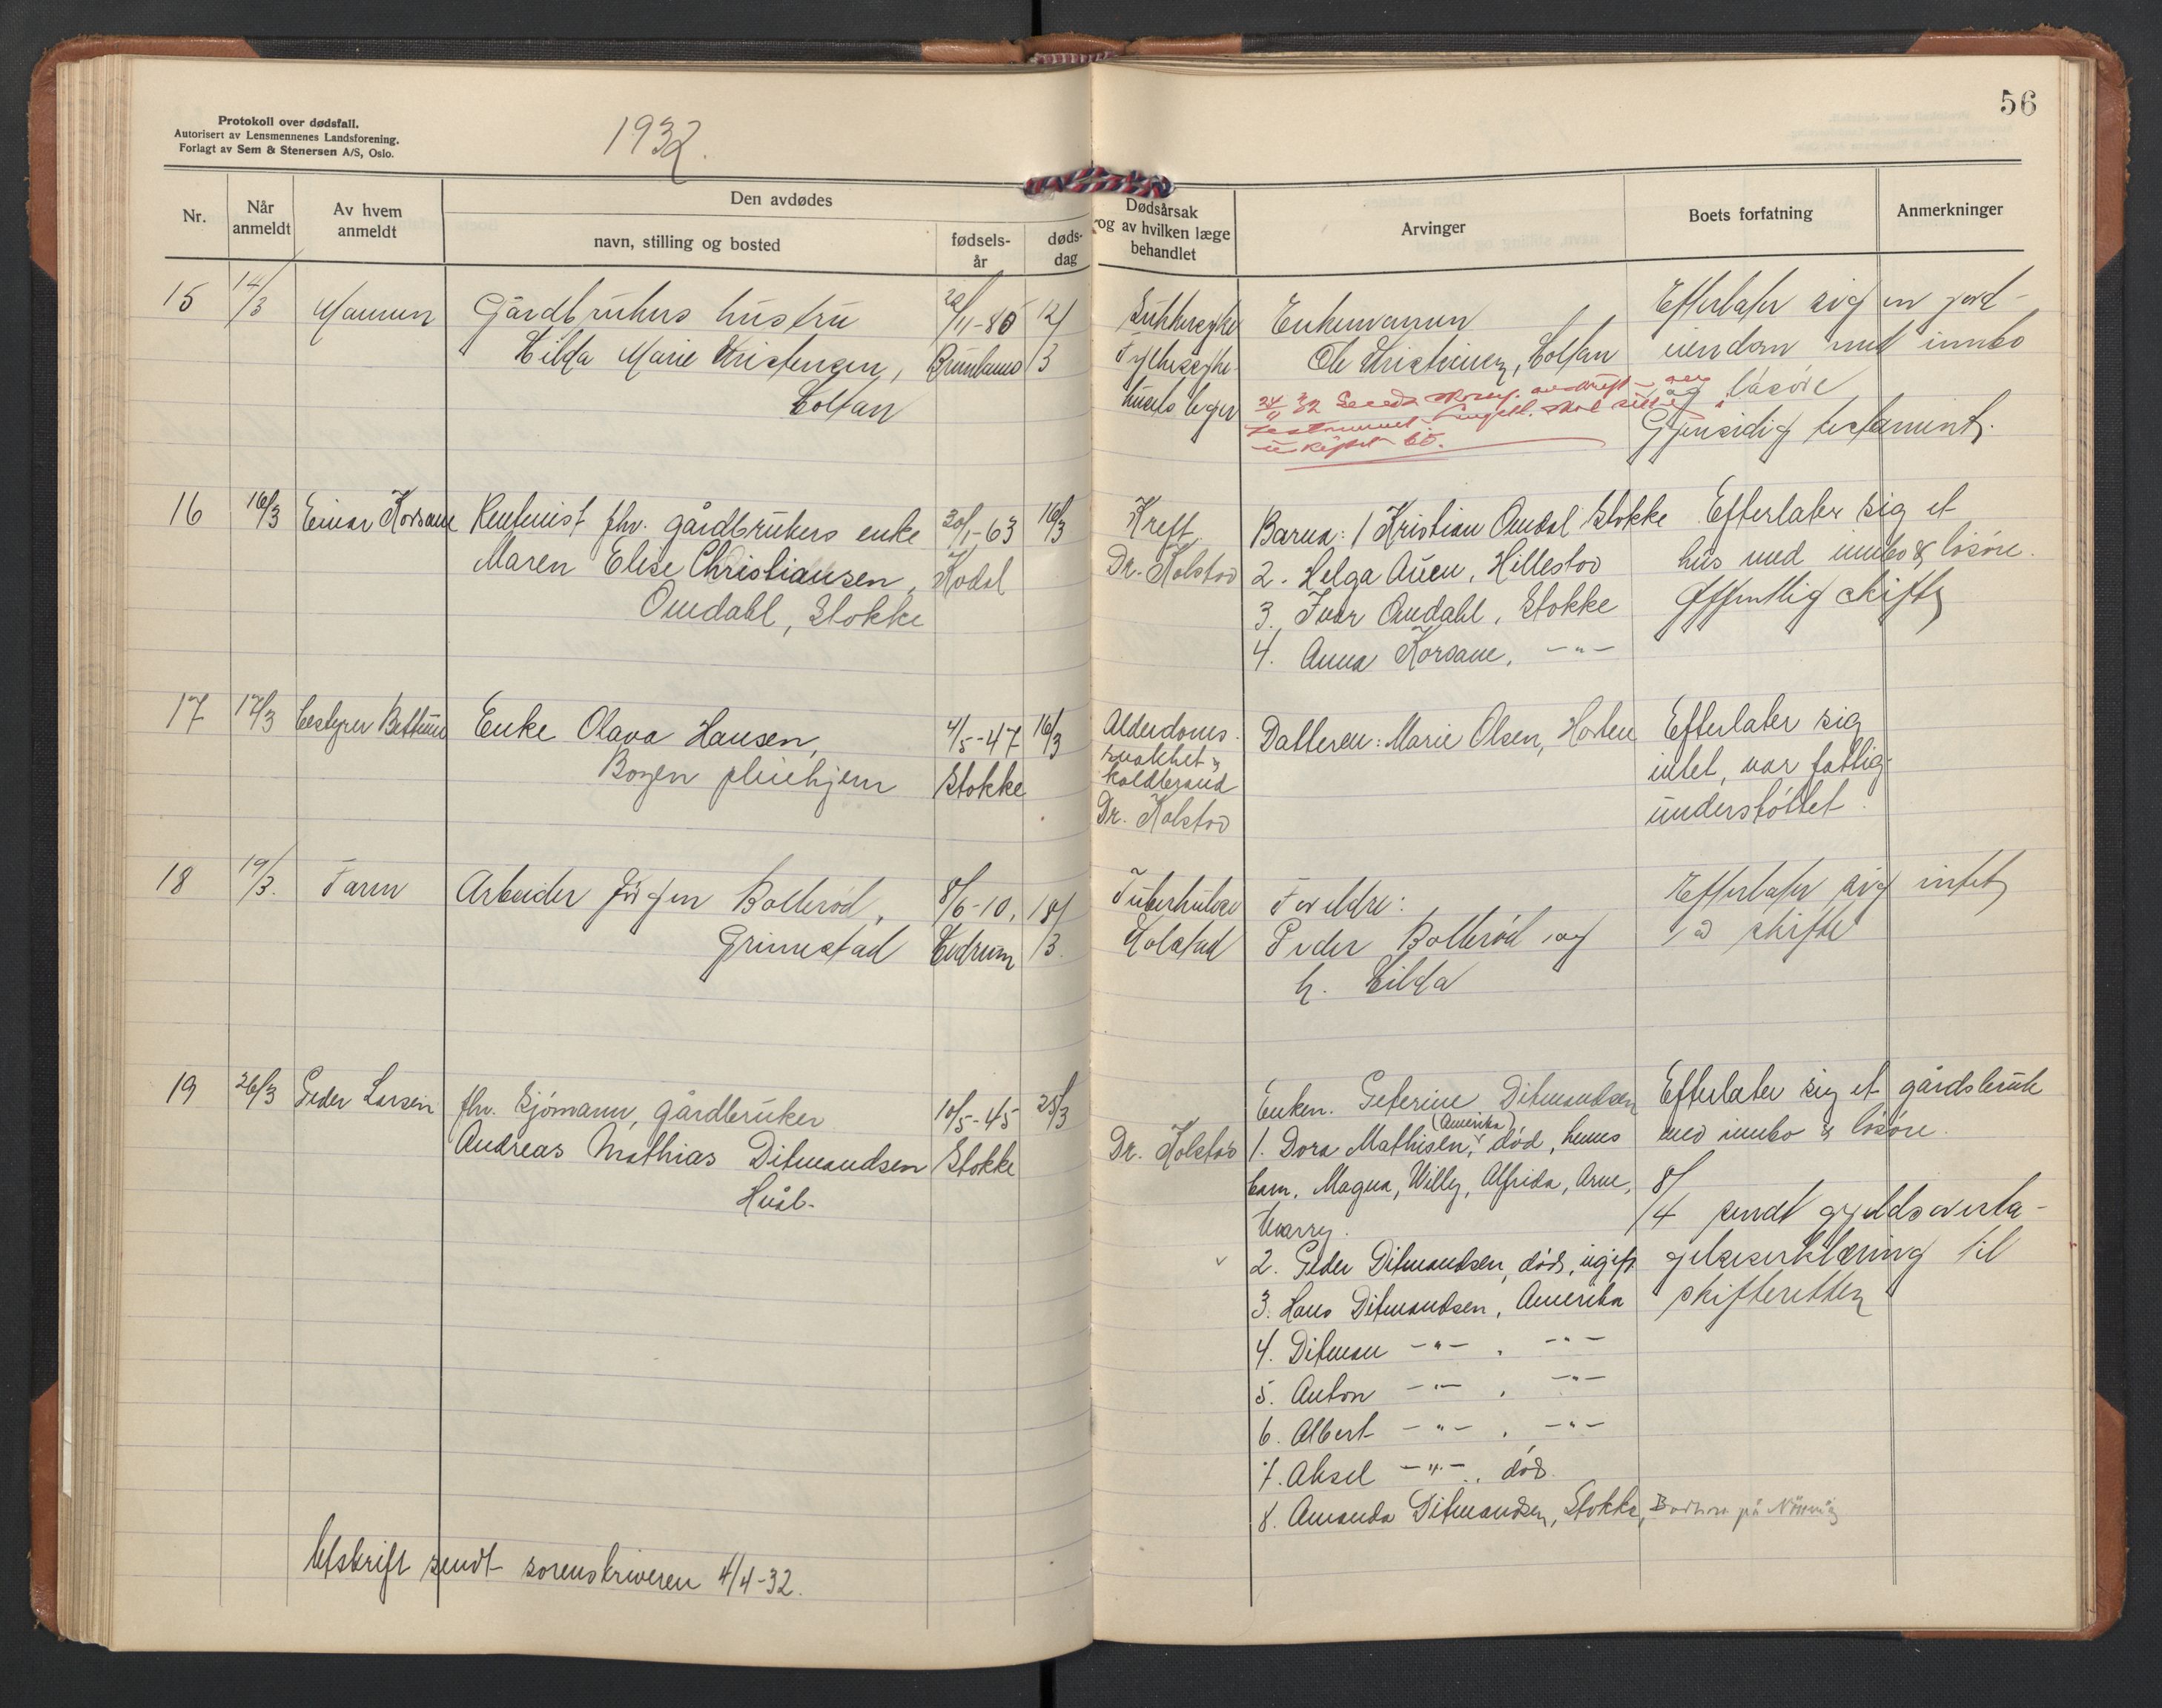 Protokoll over dødsfall.
Autorisert av Lensmennenes Landsforening.
Forlagt av Sem & Stenersen A/S, Oslo.
1932.
56
Nr.
Når anmeldt
Av hvem anmeldt
Den avdødes
navn, stilling og bosted
fødsels-år
døds-dag
Dødsårsak
og av hvilken læge
behandlet
Arvinger
Boets forfatning
Anmerkninger
15
14/3
Mannen
Gårdbrukers hustru
Hilda Marie Kristensen,
Holtan
20/11-80
Brunlanes
12/3
Sukkersyke
Sykehusets leger
Enkemannen
Ole Kristensen, Holtan
Efterlater sig en jord-
eiendom med innbo
og løsøre
Gjensidig testament.
24/11 32
testamentet.
uskiftet bo.
16
16/3
Einar Korsane
Rentenist fhv. gårdbrukers enke
Maren Elise Christiansen,
Omdahl, Stokke
30/1-63
Kodal
16/3
Kreft
Dr. Kolstad
Barna: 1 Kristian Omdal Stokke
2. Helga Auen, Hillestad
3. Ivar Omdahl, Stokke
4. Anna Korsane, -"-
Efterlater sig et
hus med innbo & løsøre.
Offentlig skifte
17
17/3
Bestyrer Bettum
Enke Olava Hansen,
Bogen pleiehjem
4/5-47
Stokke
16/3
Alderdoms-
svakhet &
koldbrand
Dr. Kolstad
Datteren: Marie Olsen, Horten
Efterlater sig
intet, var fattig-
understøttet.
18
19/3.
Farm
Arbeider Jørgen Bollerød,
Grimestad
8/6-10,
Hedrum
18/3.
Tuberkulose
Kolstad
Foreldre:
Peder Bollerød og
h. Hilda
Efterlater sig intet
skifte
19
26/3
Peder Larsen
fhv. Sjømann, gårdbruker
Andreas Mathias Ditmandsen
Huåb.
10/5-45
Stokke
25/3
Dr. Kolstad
Enken. Peterine Ditmandsen
(Amerika)
1. Dora Mathisen, død, hennes
barn, Magna, Willy, Alfrida, Arne,
Harry.
2. Peder Ditmandsen, død, ugift
3. Hans Ditmandsen, Amerika
4. Ditman -"-, -"-
5. Anton -"-, -"-
6. Albert -"-, -"-
7. Aksel -"-, død.
8. Amanda Ditmandsen, Stokke,
Efterlater sig et gårdsbruk
med innbo & løsøre.
8/4 sendt gjeldsoverta-
gelseserklæring til
skifteretten
Avskrift sendt sorenskriveren 4/4-32.